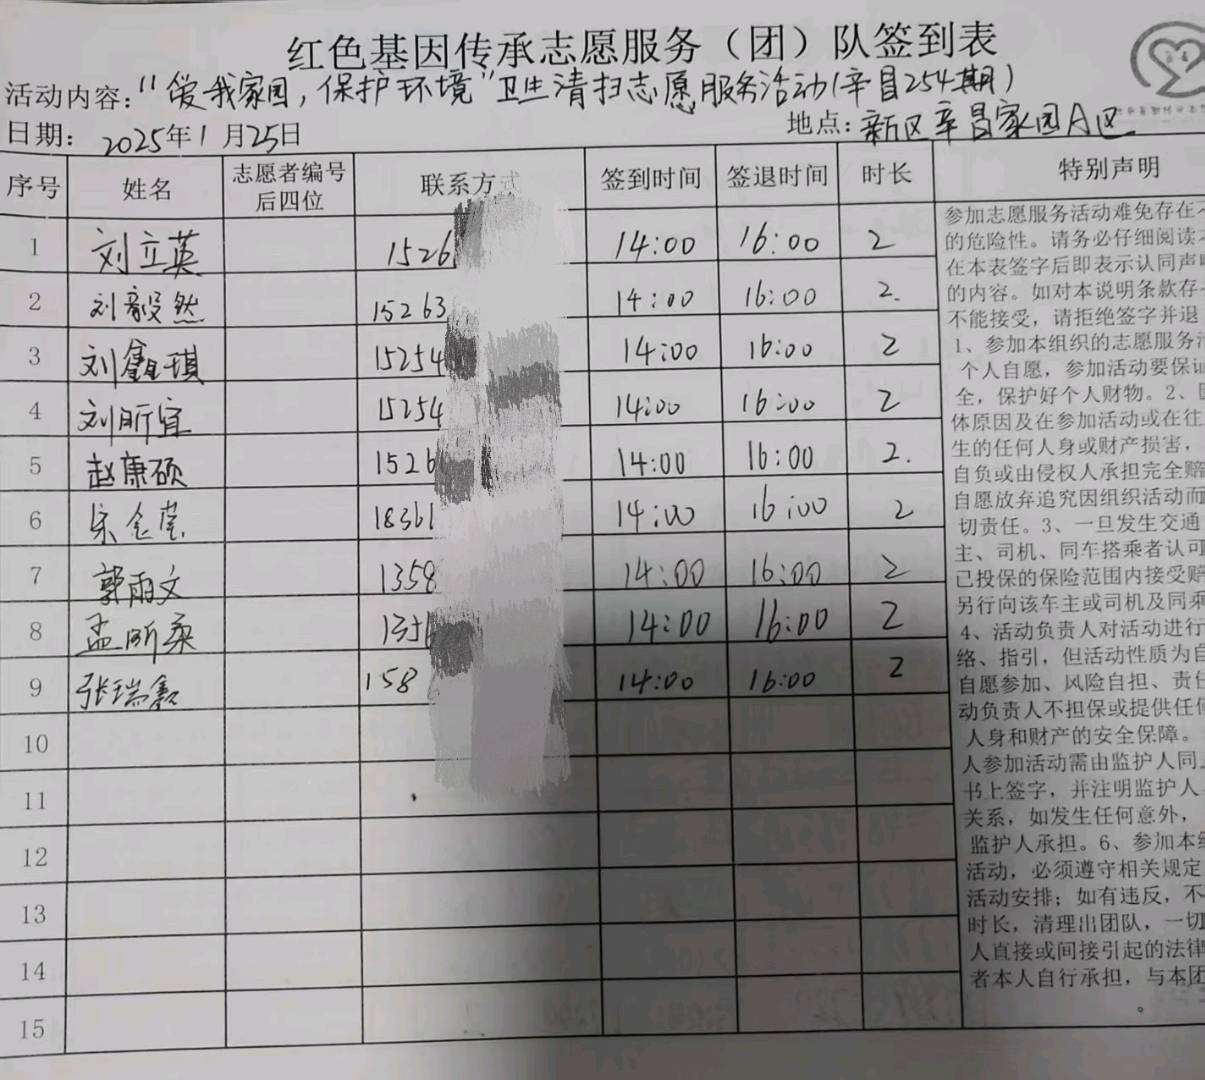 红色基因传承志愿服务（团）队签到表
活动内容："爱我家园，保护环境"卫生清扫志愿服务活动(辛昌254期)
日期：2025年1月25日
地点：新区辛昌家园A区
序号 姓名 志愿者编号后四位 联系方式 签到时间 签退时间 时长 特别声明
1 刘立英 1526 14:00 16:00 2
2 刘毅然 15263 14:00 16:00 2.
3 刘鑫琪 15254 14:00 16:00 2
4 刘昕宜 15254 14:00 16:00 2
5 赵康硕 1526 14:00 16:00 2.
6 宋金莹 18361 14:00 16:00 2
7 郭雨文 1358 14:00 16:00 2
8 孟昕柔 1356 14:00 16:00 2
9 张瑞鑫 158 14:00 16:00 2
10
11
12
13
14
15
参加志愿服务活动难免存在不
的危险性。请务必仔细阅读本
在本表签字后即表示认同声明
的内容。如对本说明条款存
不能接受，请拒绝签字并退
1、参加本组织的志愿服务活
个人自愿，参加活动要保证
全，保护好个人财物。2、因
体原因及在参加活动或在往
生的任何人身或财产损害，
自负或由侵权人承担完全赔
自愿放弃追究因组织活动而
切责任。3、一旦发生交通
主、司机、同车搭乘者认可
已投保的保险范围内接受赔
另行向该车主或司机及同乘
4、活动负责人对活动进行
络、指引，但活动性质为自
自愿参加、风险自担、责任
动负责人不担保或提供任何
人身和财产的安全保障。
人参加活动需由监护人同
书上签字，并注明监护人
关系，如发生任何意外，
监护人承担。6、参加本组
活动，必须遵守相关规定
活动安排；如有违反，不
时长，清理出团队，一切
人直接或间接引起的法律
者本人自行承担，与本团
。